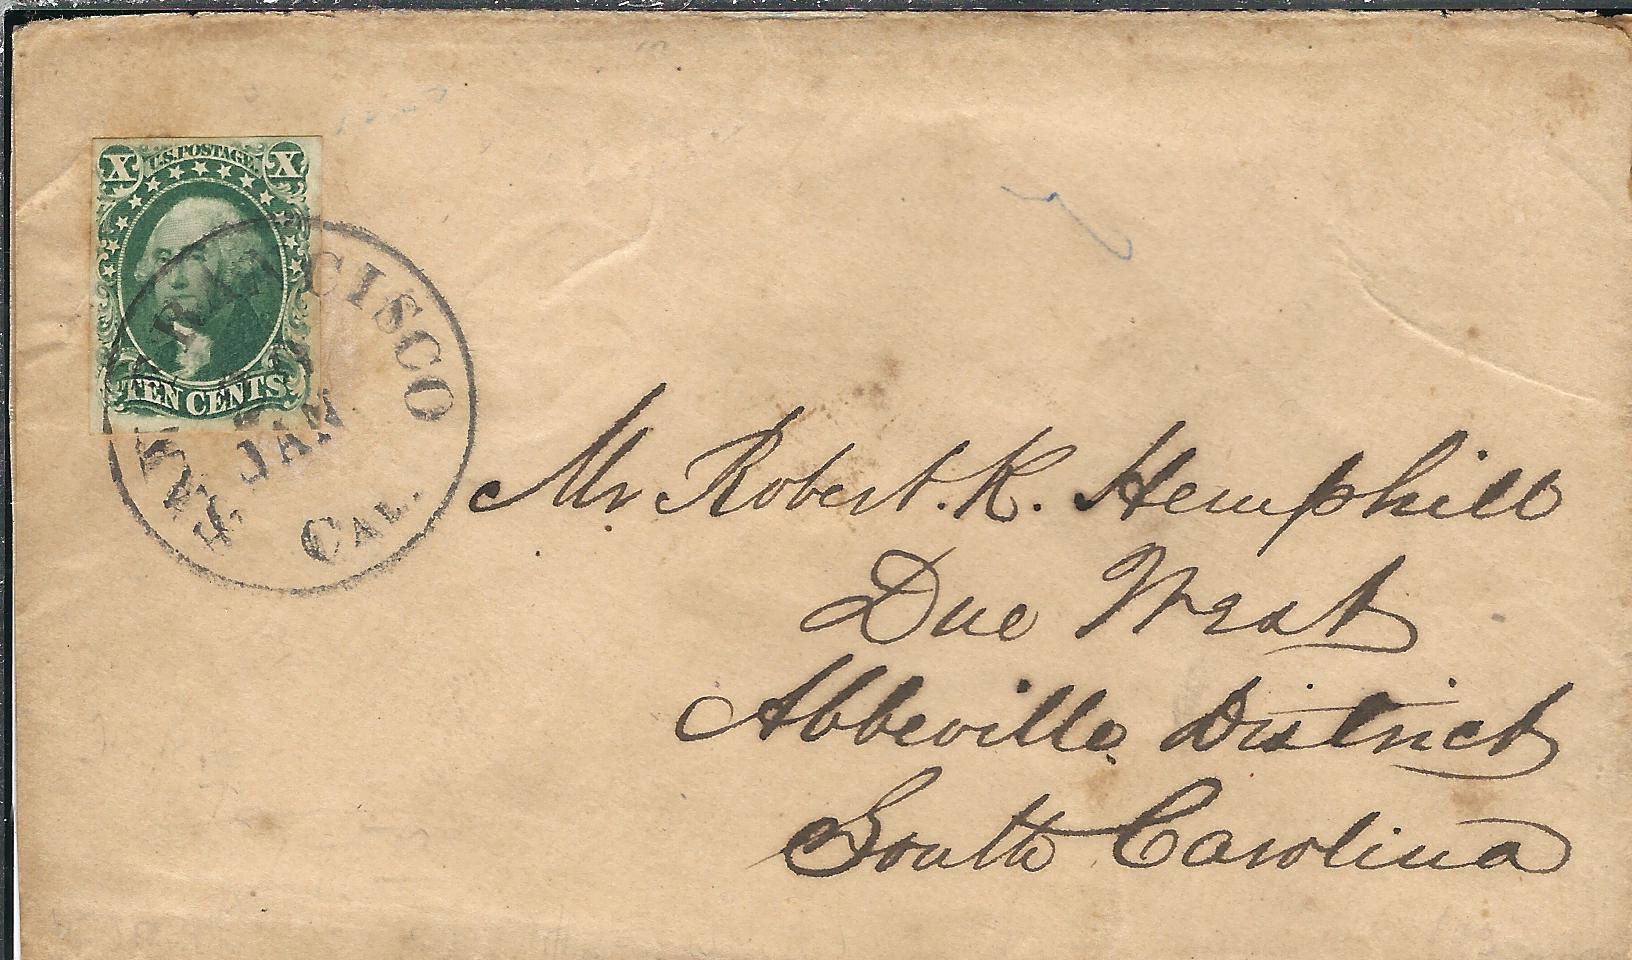 X U.S. POSTAGE. X
TEN CENTS
SAN FRANCISCO
JAN
CAL.
Mr Robert. K. Hemphill
Due West
Abbeville District
South Carolina